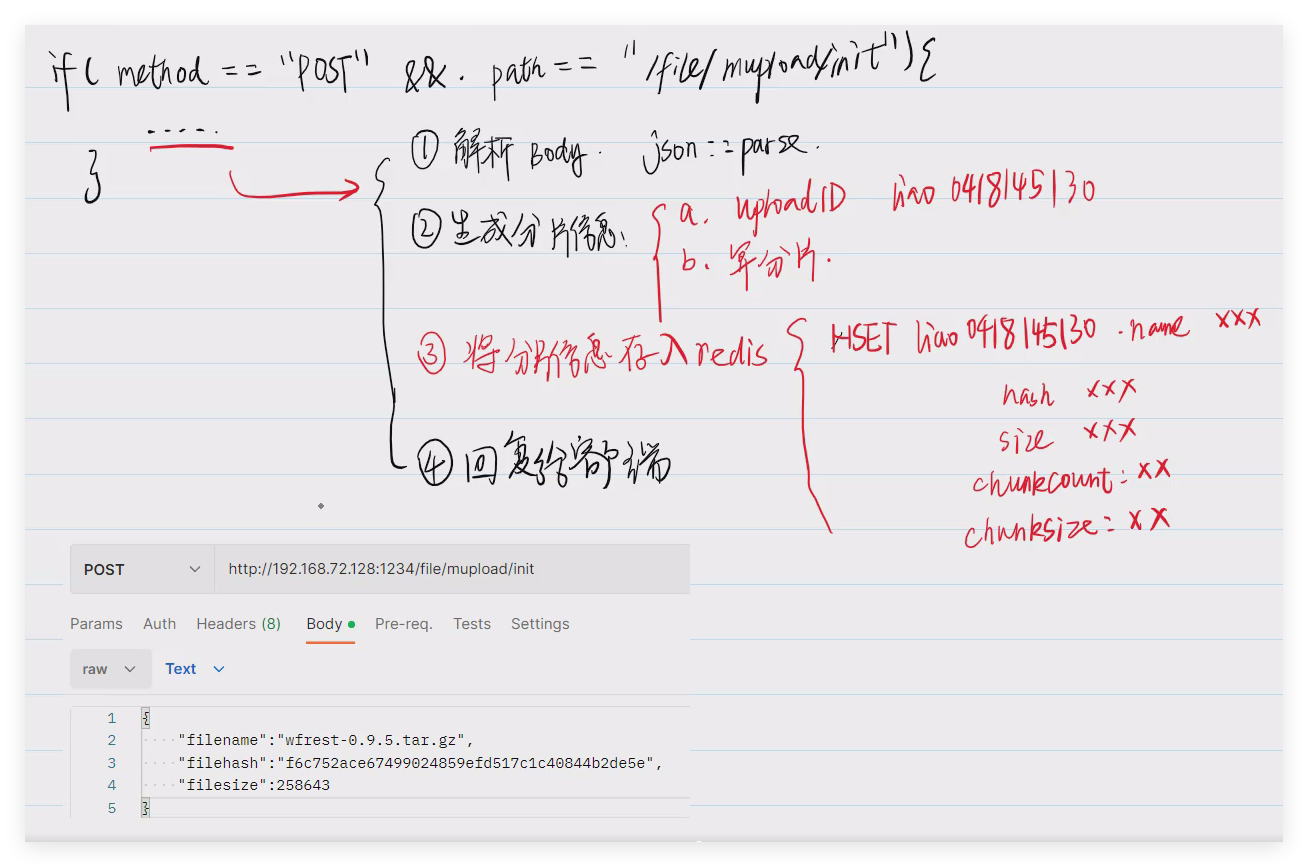 if( method == "POST" &&. path== "/file/mupload/init"){
.....
}
① 解析 Body. json::parse.
② 生成分片信息:
a. uploadID liao 0418145130
b. 算分片.
③ 将分片信息存入redis
HSET liao 0418145130 .name xxx
hash xxx
size xxx
chunkcount: xx
chunksize: xx
④ 回复给客户端
POST http://192.168.72.128:1234/file/mupload/init
Params Auth Headers (8) Body Pre-req. Tests Settings
raw Text
1 {
2 "filename":"wfrest-0.9.5.tar.gz",
3 "filehash":"f6c752ace67499024859efd517c1c40844b2de5e",
4 "filesize":258643
5 }